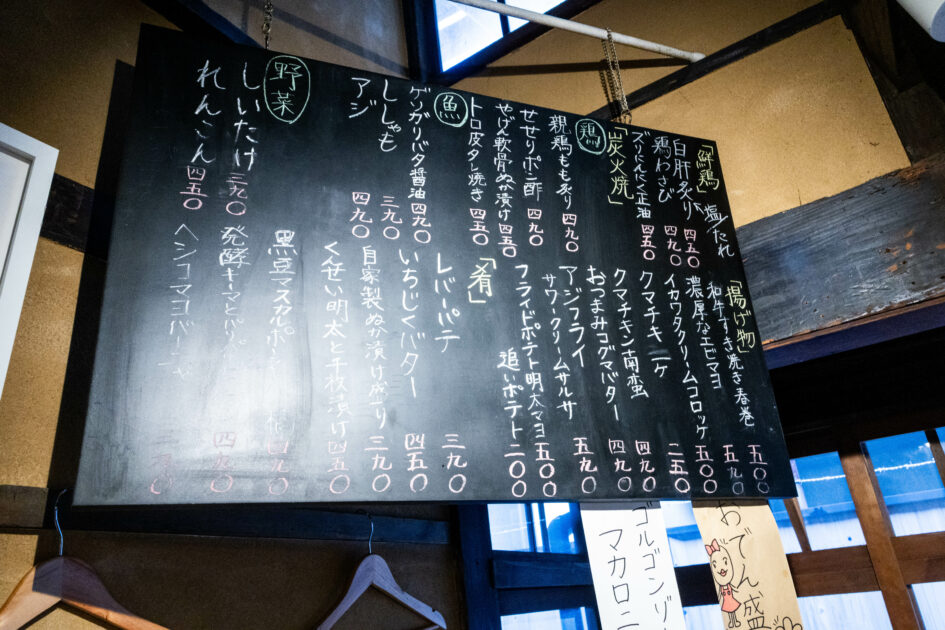 「鮮鶏」
塩/たれ
白肝炙り 四五〇
鶏わさび 四九〇
ズリにんにく正油 四五〇
「炭火焼」
鶏
親鶏もも炙り 四九〇
せせりポン酢 四九〇
やげん軟骨ぬか漬け 四五〇
トロ皮タレ焼き 四五〇
魚
ゲソガリバタ醤油 四九〇
ししゃも 三九〇
アジ 四九〇
野菜
しいたけ 三九〇
れんこん 四五〇
「揚げ物」
和牛すき焼き春巻 五〇〇
濃厚なエビマヨ 五九〇
イカワタクリームコロッケ 五〇〇
クマチキ 二ケ 二五〇
クマチキン南蛮 四九〇
おつまみコグマバター 四九〇
アジフライ 五九〇
サワークリームサルサ
フライドポテト明太マヨ 五〇〇
追いポテト 二〇〇
「肴」
レバーパテ 三九〇
いちじくバター 四五〇
自家製ぬか漬け盛り 三九〇
くんせい明太と千枚漬け 四五〇
黒豆マスカルポーネ 四九〇
発酵キーマとバ 四九〇
ヘシコマヨバ
ゴルゴンゾ
マカロニ
おでん盛